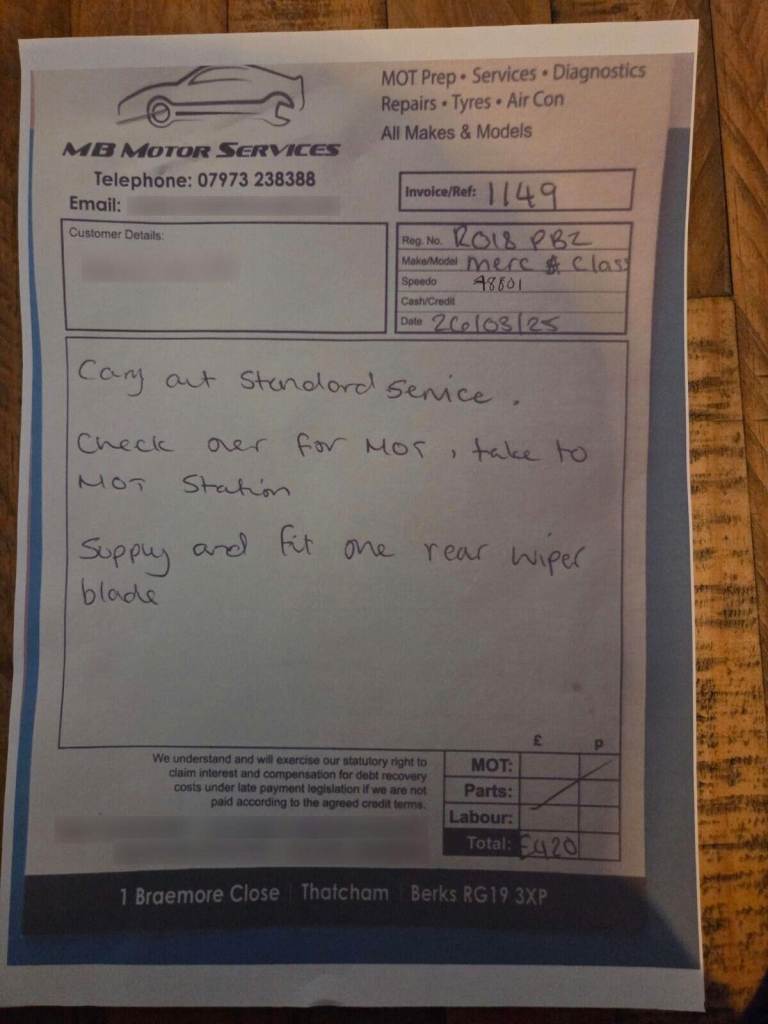 MOT Prep • Services • Diagnostics
Repairs • Tyres • Air Con
All Makes & Models
MB MOTOR SERVICES
Telephone: 07973 238388
Email:
Invoice/Ref: 1149
Customer Details:
Reg. No. RO18 PBZ
Make/Model Merc Class
Speedo 48801
Cash/Credit
Date 26/03/25
Carry out Standard Service.
Check over for MOT, take to
MOT Station
Supply and fit one rear wiper
blade
£ p
We understand and will exercise our statutory right to
claim interest and compensation for debt recovery
costs under late payment legislation if we are not
paid according to the agreed credit terms.
MOT:
Parts:
Labour:
Total: £420
1 Braemore Close | Thatcham | Berks RG19 3XP